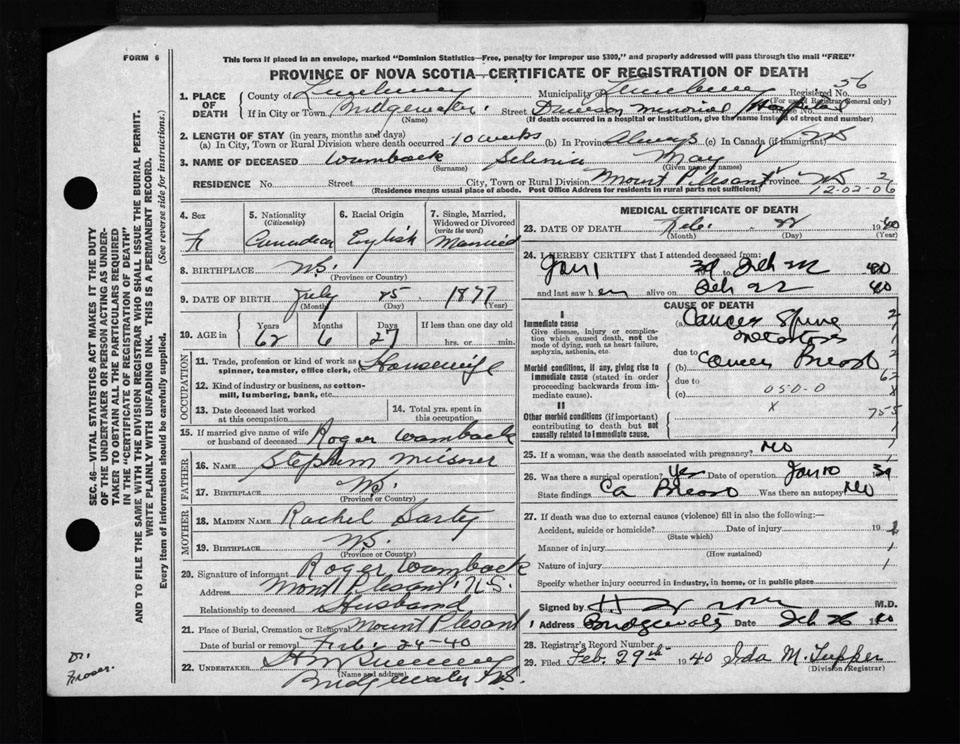 FORM 6
This form if placed in an envelope, marked "Dominion Statistics—Free, penalty for improper use $300," and properly addressed will pass through the mail "FREE"
PROVINCE OF NOVA SCOTIA—CERTIFICATE OF REGISTRATION OF DEATH
SEC. 46—VITAL STATISTICS ACT MAKES IT THE DUTY
OF THE UNDERTAKER OR PERSON ACTING AS UNDER-
TAKER TO OBTAIN ALL THE PARTICULARS REQUIRED
IN THE "CERTIFICATE OF REGISTRATION OF DEATH"
AND TO FILE THE SAME WITH THE DIVISION REGISTRAR WHO SHALL ISSUE THE BURIAL PERMIT.
WRITE PLAINLY WITH UNFADING INK. THIS IS A PERMANENT RECORD.
Every item of information should be carefully supplied. (See reverse side for instructions.)
1. PLACE OF DEATH
County of Lunenburg Municipality of Lunenburg Registered No. 56
(For use of Registrar General only)
If in City or Town Bridgewater Street Dawson Memorial Hospital House No.
(Name) (If death occurred in a hospital or institution, give the name instead of street and number)
2. LENGTH OF STAY (in years, months and days)
(a) In City, Town or Rural Division where death occurred 10 weeks (b) In Province Always (c) In Canada (if immigrant)
3. NAME OF DECEASED Wamback Selinia May
(Surname) (Given name or names)
RESIDENCE No. Street City, Town or Rural Division Mount Plesant Province NS
(Residence means usual place of abode. Post Office Address for residents in rural parts not sufficient) 12-02-06
4. Sex F
5. Nationality (Citizenship) Canadian
6. Racial Origin English
7. Single, Married, Widowed or Divorced (write the word) Married
8. BIRTHPLACE N.S.
(Province or Country)
9. DATE OF BIRTH July 25 1877
(Month) (Day) (Year)
10. AGE in Years 62 Months 6 Days 27 If less than one day old hrs. or min.
OCCUPATION
11. Trade, profession or kind of work as spinner, teamster, office clerk, etc. Housewife
12. Kind of industry or business, as cotton-mill, lumbering, bank, etc.
13. Date deceased last worked at this occupation
14. Total yrs. spent in this occupation
15. If married give name of wife or husband of deceased Roger Wamback
FATHER
16. NAME Stephen Meisner
17. BIRTHPLACE N.S.
(Province or Country)
MOTHER
18. MAIDEN NAME Rachel Sarty
19. BIRTHPLACE N.S.
(Province or Country)
20. Signature of informant Roger Wamback
Address Mont Plesant N.S.
Relationship to deceased Husband
21. Place of Burial, Cremation or Removal Mount Plesant
Date of burial or removal Feb. 24-40
22. UNDERTAKER
(Name and address)
Bridgewater N.S.
Dr. Fraser.
MEDICAL CERTIFICATE OF DEATH
23. DATE OF DEATH Feb. 22 1940
(Month) (Day) (Year)
24. I HEREBY CERTIFY that I attended deceased from:
Jan 1 Feb 22 40
and last saw her alive on Feb 22 40
CAUSE OF DEATH
I
Immediate cause
Give disease, injury or complication which caused death, not the mode of dying, such as heart failure, asphyxia, asthenia, etc.
(a) Cancer Spine
metastases
due to
(b) Cancer Breast
Morbid conditions, if any, giving rise to immediate cause (stated in order proceeding backwards from immediate cause).
due to
(c) 050-0
II
Other morbid conditions (if important) contributing to death but not causally related to immediate cause.
755
25. If a woman, was the death associated with pregnancy? No
26. Was there a surgical operation? Yes Date of operation Jan 10 39
State findings Ca Breast Was there an autopsy? No
27. If death was due to external causes (violence) fill in also the following:—
Accident, suicide or homicide? Date of injury 19
(State which)
Manner of injury
(How sustained)
Nature of injury
Specify whether injury occurred in industry, in home, or in public place
Signed by M.D.
Address Bridgewater Date Feb 26 1940
28. Registrar's Record Number
29. Filed Feb. 29th 1940 Ida M. Tupper
(Division Registrar)